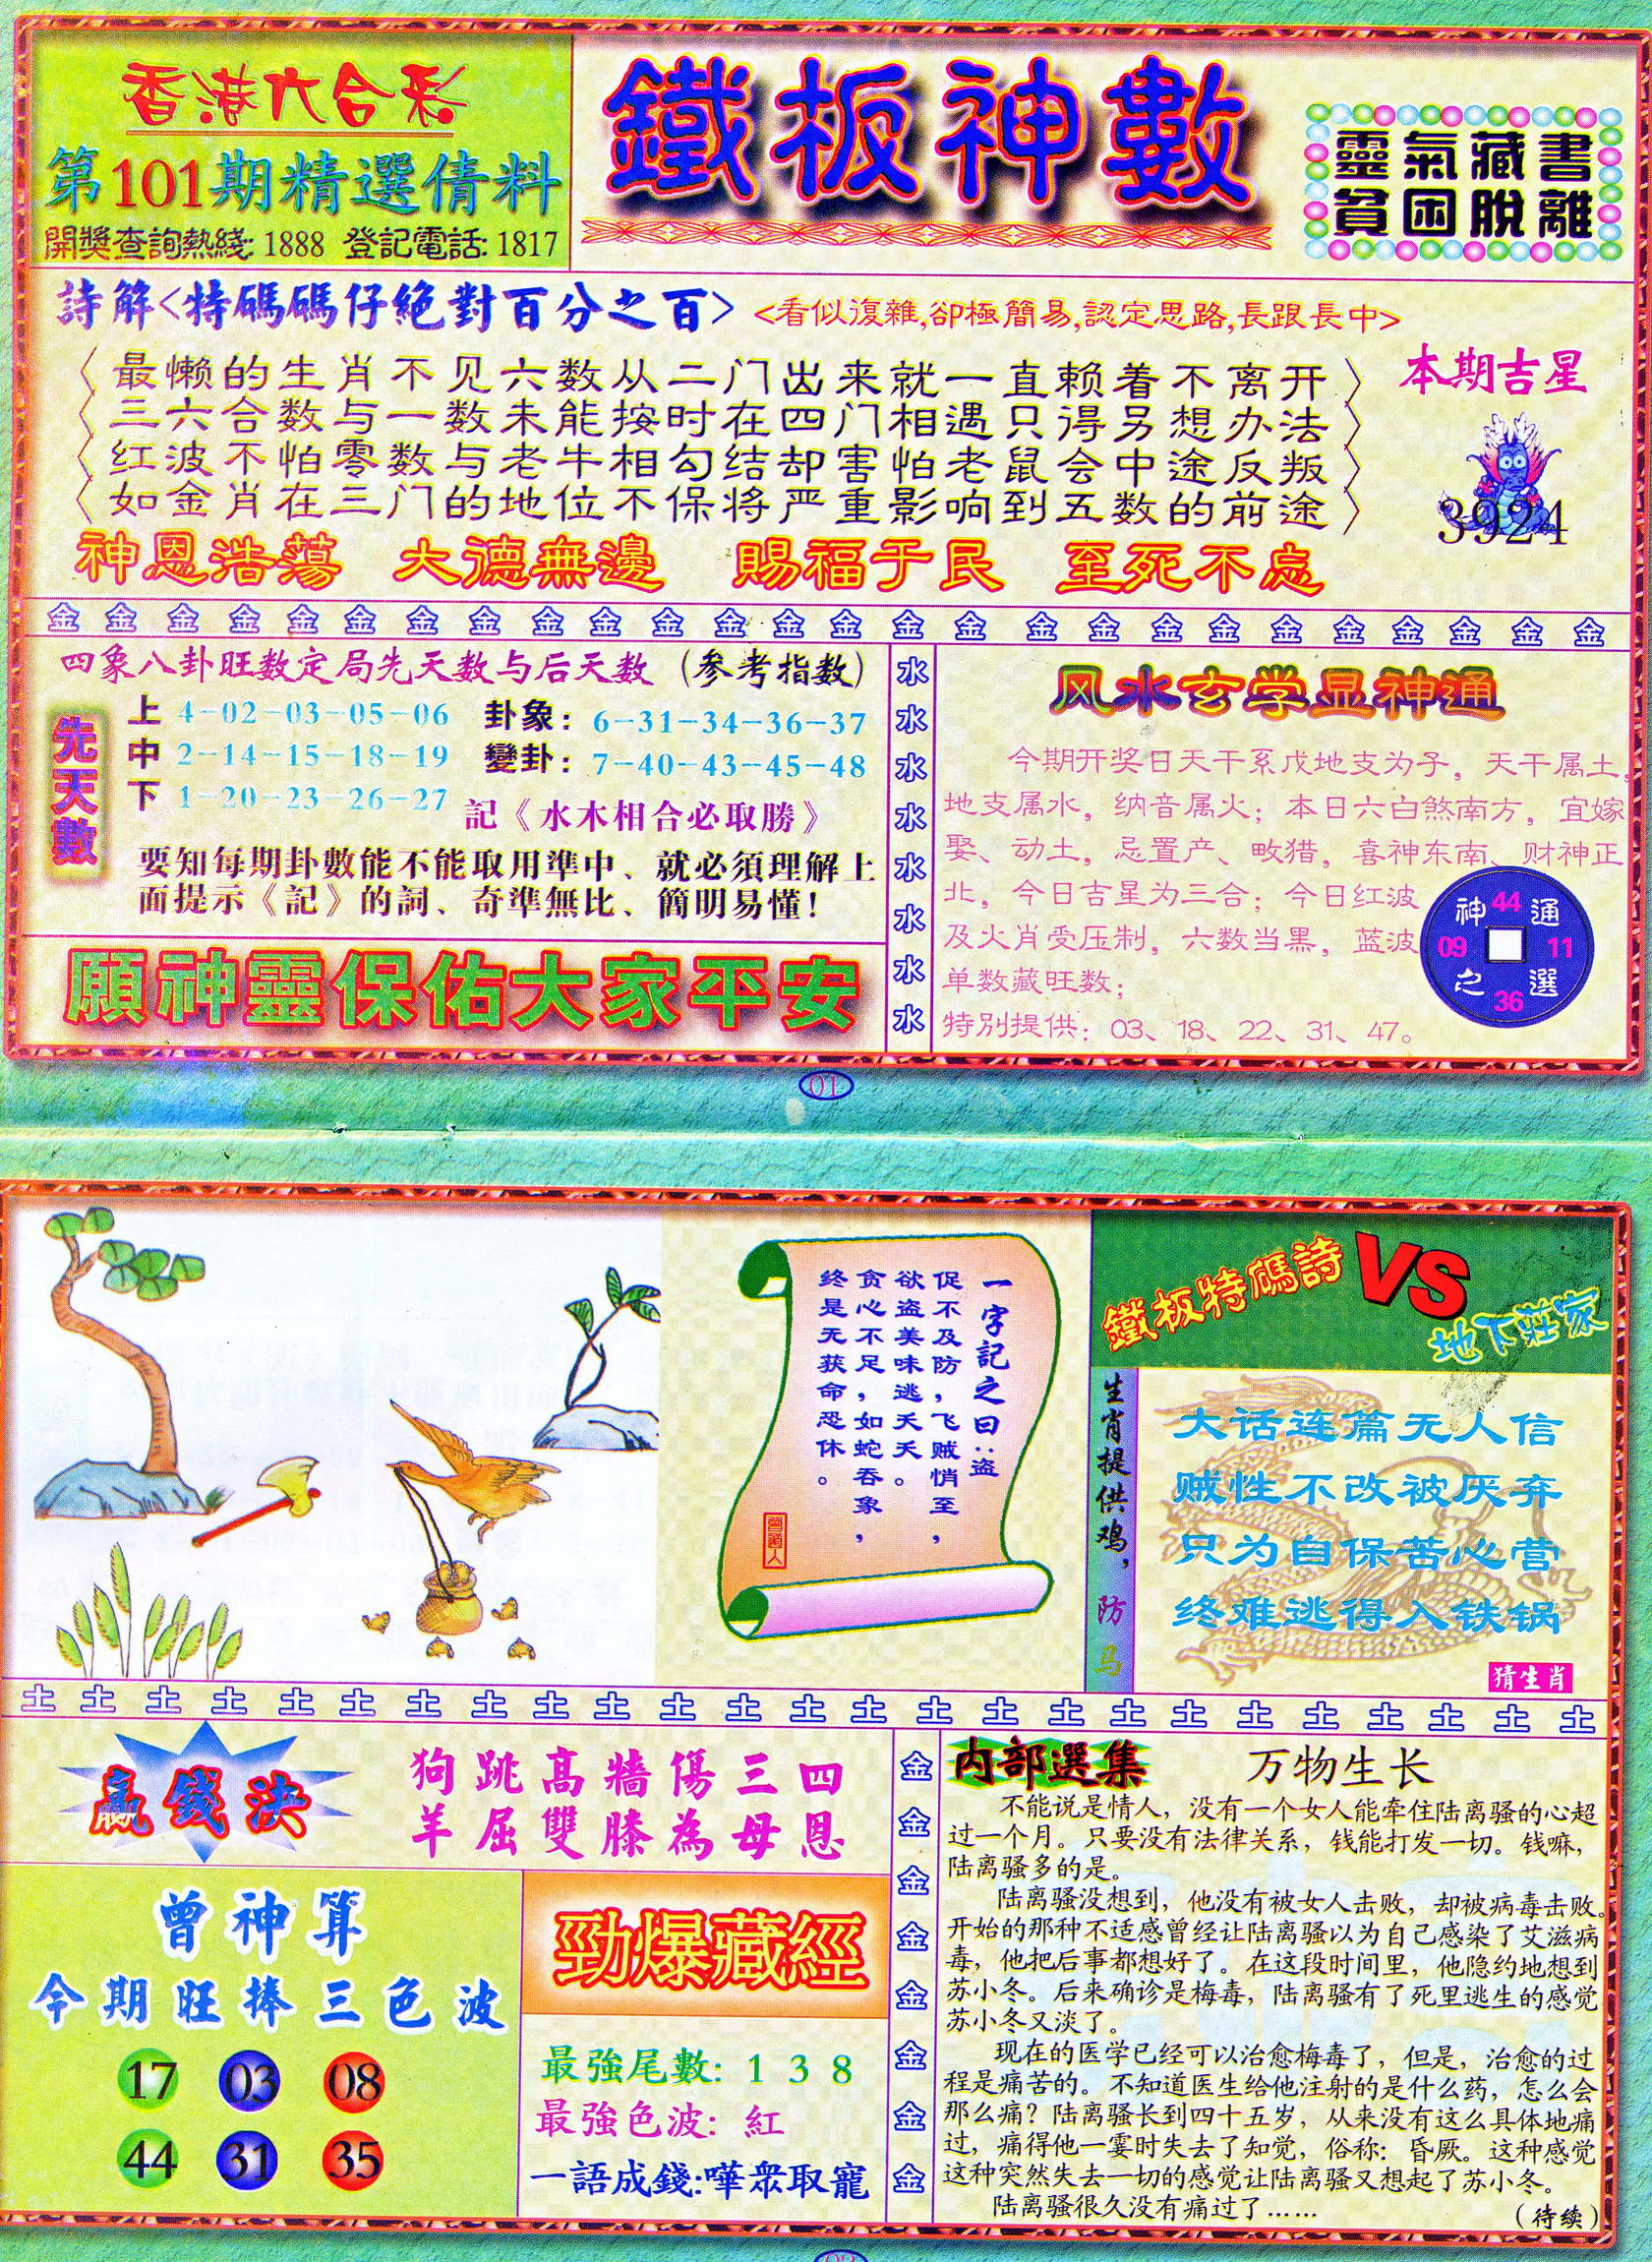 香港六合彩
第101期精選倩料
開獎查詢熱綫: 1888 登記電話: 1817
鐵板神數
靈氣藏書
貧困脫離
詩解<特碼碼仔絕對百分之百> <看似復雜,卻極簡易,認定思路,長跟長中>
最懒的生肖不见六数从二门出来就一直赖着不离开
三六合数与一数未能按时在四门相遇只得另想办法
红波不怕零数与老牛相勾结却害怕老鼠会中途反叛
如金肖在三门的地位不保将严重影响到五数的前途
本期吉星
3924
神恩浩蕩 大德無邊 賜福于民 至死不忘
金 金 金 金 金 金 金 金 金 金 金 金 金 金 金 金 金 金 金 金 金 金 金 金 金 金
四象八卦旺数定局先天数与后天数（参考指数）
先天數
上 4-02-03-05-06 卦象: 6-31-34-36-37
中 2-14-15-18-19 變卦: 7-40-43-45-48
下 1-20-23-26-27 記《水木相合必取勝》
要知每期卦數能不能取用準中、就必須理解上
面提示《記》的詞、奇準無比、簡明易懂!
願神靈保佑大家平安
水
水
水
水
水
水
水
水
风水玄学显神通
今期开奖日天干系戊地支为子，天干属土，
地支属水，纳音属火；本日六白煞南方，宜嫁
娶、动土，忌置产、畋猎，喜神东南、财神正
北，今日吉星为三合；今日红波
及火肖受压制，六数当黑，蓝波
单数藏旺数；
特别提供：03、18、22、31、47。
神 44 通
09 11
之 36 選
01
一字記之曰：盗
促不及防，飞贼悄至，
欲盗美味逃夭夭。
贪心不足，如蛇吞象，
终是无获命恐休。
曾道人
鐵板特碼詩 VS 地下莊家
生肖提供鸡，防马
大话连篇无人信
贼性不改被厌弃
只为自保苦心营
终难逃得入铁锅
猜生肖
土 土 土 土 土 土 土 土 土 土 土 土 土 土 土 土 土 土 土 土 土 土 土 土 土
贏錢決
狗跳高牆傷三四
羊屈雙膝為母恩
曾神算
今期旺捧三色波
17 03 08
44 31 35
勁爆藏經
最強尾數: 1 3 8
最強色波: 紅
一語成錢:嘩衆取寵
金
金
金
金
金
金
金
金
内部選集 万物生长
不能说是情人，没有一个女人能牵住陆离骚的心超
过一个月。只要没有法律关系，钱能打发一切。钱嘛，
陆离骚多的是。
陆离骚没想到，他没有被女人击败，却被病毒击败。
开始的那种不适感曾经让陆离骚以为自己感染了艾滋病
毒，他把后事都想好了。在这段时间里，他隐约地想到
苏小冬。后来确诊是梅毒，陆离骚有了死里逃生的感觉
苏小冬又淡了。
现在的医学已经可以治愈梅毒了，但是，治愈的过
程是痛苦的。不知道医生给他注射的是什么药，怎么会
那么痛？陆离骚长到四十五岁，从来没有这么具体地痛
过，痛得他一霎时失去了知觉，俗称：昏厥。这种感觉
这种突然失去一切的感觉让陆离骚又想起了苏小冬。
陆离骚很久没有痛过了……
（待续）